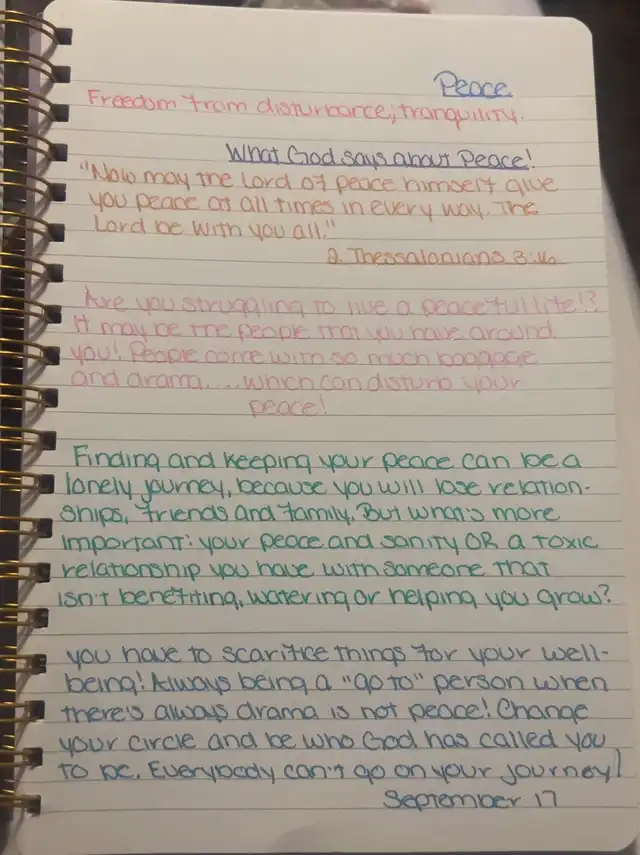 Peace
Freedom from disturbance; tranquility.
What God says about Peace!
"Now may the Lord of peace himself give
you peace at all times in every way. The
Lord be with you all."
2 Thessalonians 3:16
Are you struggling to live a peacefull life!?
It may be the people that you have around
you! People come with so much baggage
and drama....which can disturb your
peace!
Finding and keeping your peace can be a
lonely journey, because you will lose relation-
ships, friends and family. But what's more
important: your peace and sanity OR a toxic
relationship you have with someone that
isn't benefiting, watering or helping you grow?
you have to scarifice things for your well-
being! Always being a "go to" person when
there's always drama is not peace! Change
your circle and be who God has called you
to be. Everybody can't go on your journey!
September 17